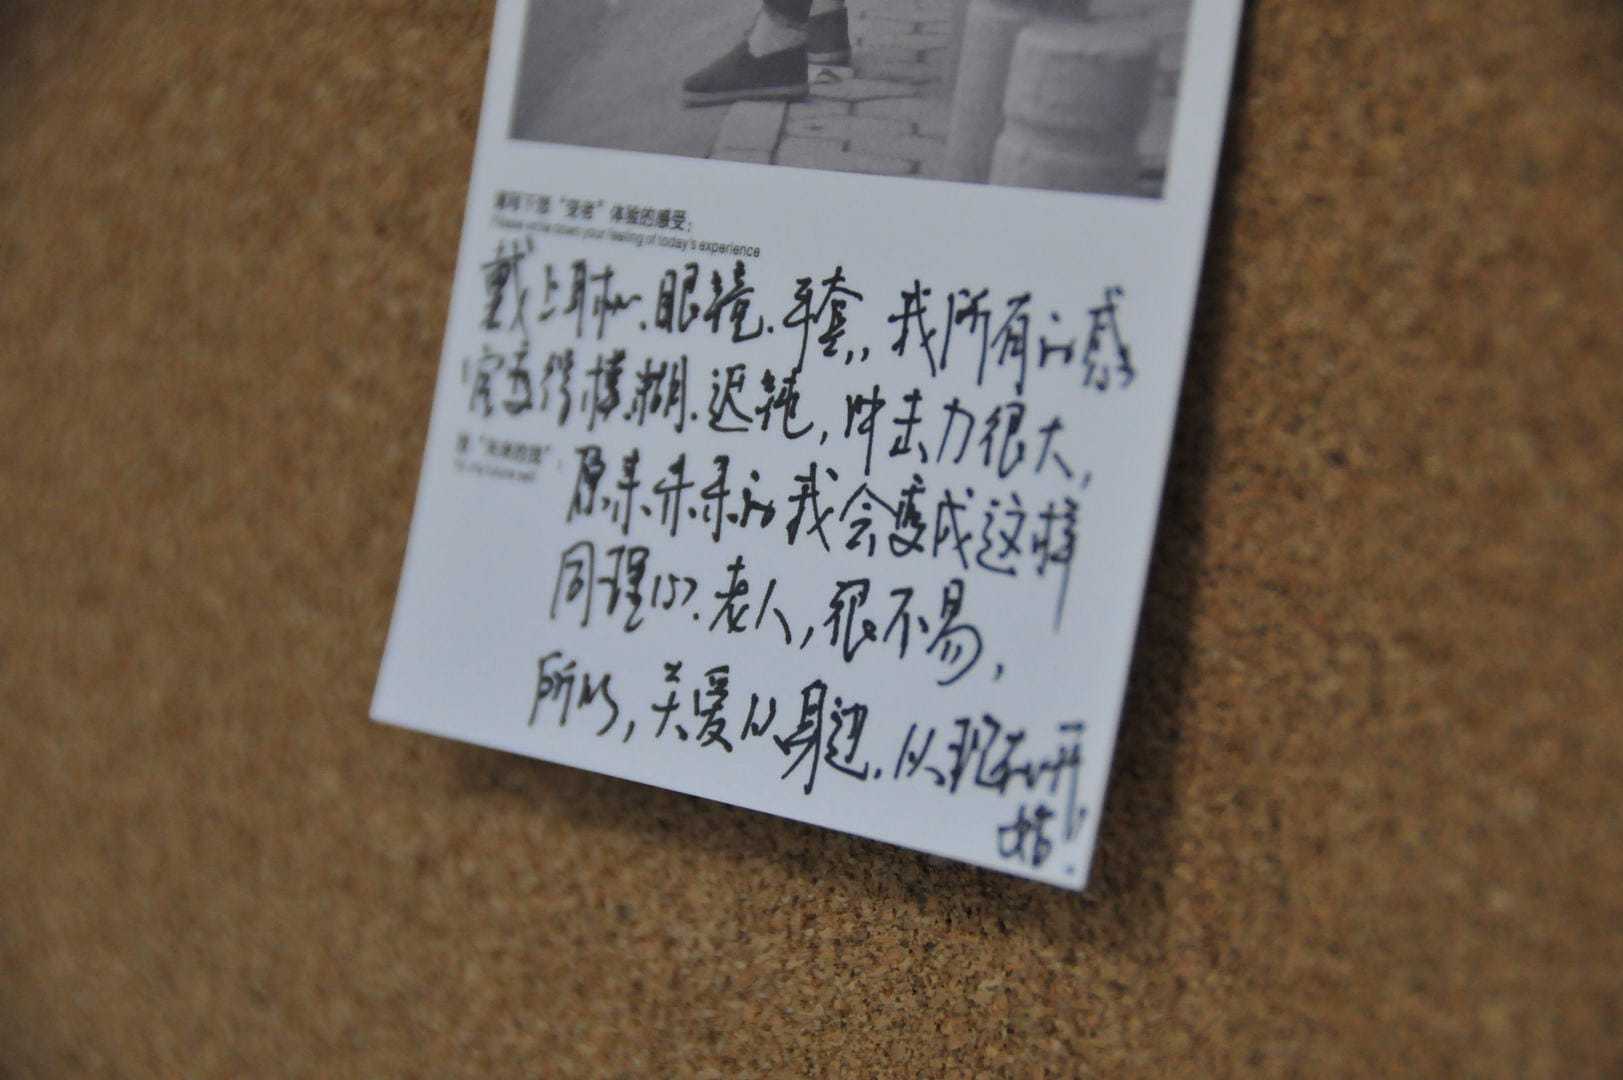 请写下您“变老”体验的感受：
Please write down your feeling of today's experience
戴上耳机、眼镜、手套，我所有的感
官变得模糊、迟钝，冲击力很大，
致“未来的我”：
To my future self
原来未来的我会变成这样
同理心，老人，很不易，
所以，关爱从身边，从现在开
始！